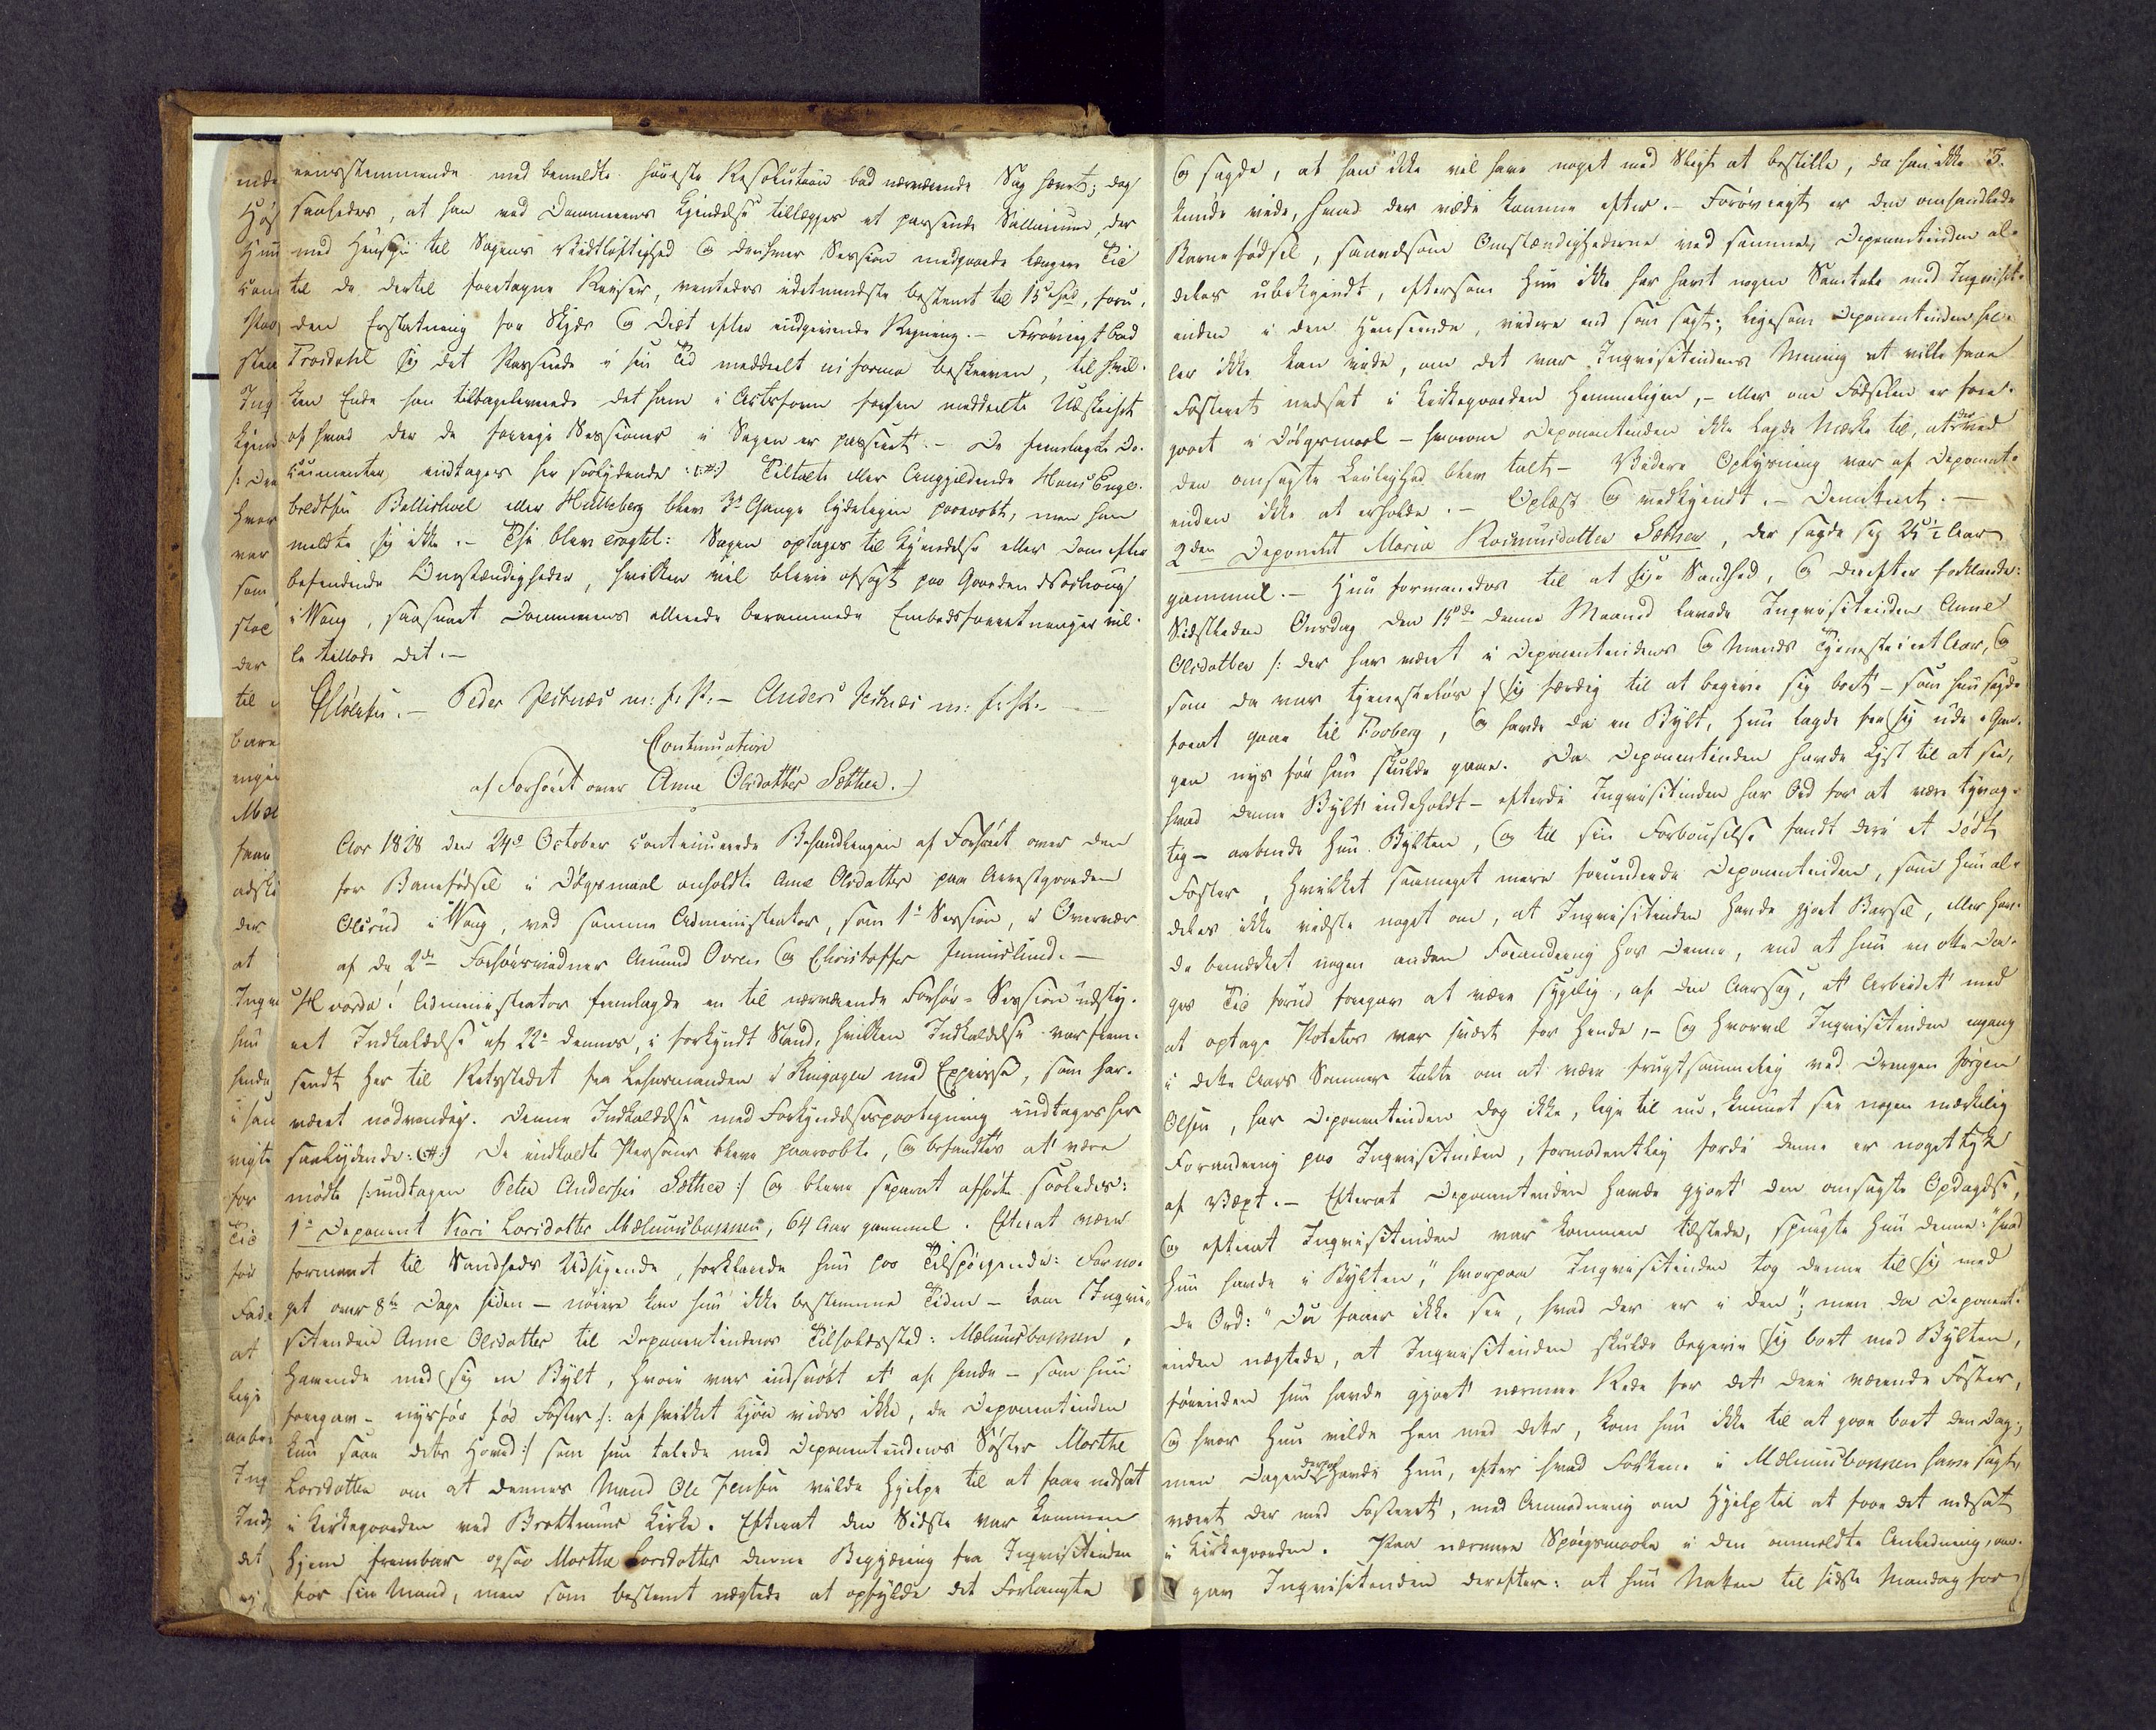 eensstemmende med bemeldte høieste Resolution bad nærværende Sag hævet; dog
saaledes, at han ved Dommerens Kjendelse tillægges et passende Sallarium, der
med Hensyn til Sagens Vidtløftighed og dens hver Session medgaaede længere Tid
til de dertil foretagne Reiser, ventedes idetmindste bestemt til 15 Spd, foru-
den Erstatning for Skyds og Diæt efter indgivende Regning. – Forøvrigt bad
Trosdahl sig det Passerede i sin Tid meddeelt in forma beskreven, til hvil-
ken Ende han tilbageleverede det ham i Actsform forhen meddeelte Udskrift
af hvad der de forrige Sessioner i Sagen er passeret. – De fremlagde Do-
cumenter indtages her saalydende: (:#:) Tiltalte eller Angjeldende Hans Enge-
bredtsen Bellishoel eller Hulleberg blev 3de Gange lydeligen paaraabt, men han
meldte sig ikke. – Thi blev eragtet: Sagen optages til Kjendelse eller Dom efter
befindende Omstændigheder, hvilken vil blive afsagt paa Gaarden
i Vang, saasnart Dommerens allerede berammede Embedsforretninger vil-
le tillade det. –
Peder Jesnæs m: f: P: – Anders Jesnæs m: f: P. –
Continuation
af Forhøret over Anne Olsdatter Sæthre.
Aar 1828 den 24de October continuerede Behandlingen af Forhøret over den
for Barnefødsel i Dølgsmaal anholdte Anne Olsdatter paa Arrestgaarden
Olsrud i Vang, ved samme Administrator, som 1te Session, i Overvær
af de 2de Forhørsvidner Amund Ovren og Christoffer Jemnislund. –
Hvorda! Administrator fremlagde en til nærværende Forhør-Session udsty-
ret Indkaldelse af 22de dennes, i forkyndt Stand, hvilken Indkaldelse var frem-
sendt her til Retsstedet fra Lehnsmanden i Ringsager med Expresse, som har
været nødvendig. Denne Indkaldelse med Forkyndelsespaategning indtages her
saalydende: (:#:) De indkaldte Personer bleve paaraabte, og befandtes at være
mødte /: undtagen Peter Andersen Sæthre :/ og bleve separat afhørte saaledes:
1te Deponent Kari Larsdatter Mælumsbakken, 64 Aar gammel. Efterat være
formanet til Sandheds Udsigende, forklarede hun paa Tilspørgende: For no-
get over 8te Dage siden – nøiere kan hun ikke bestemme Tiden – kom Inqvi-
sitinden Anne Olsdatter til Deponentindens Tilholdssted: Mælumsbakken,
havende med sig en Bylt, hvori var indsvøbt et af hende – som hun
foregav – nys før fød Foster /: af hvilket Kjøn vides ikke, da Deponentinden
kun saae dets Hoved :/ som hun talede med Deponentindens Søster Marthe
Larsdatter om at dennes Mand Ole Jensen vilde hjelpe til at faae nedsat
i Kirkegaarden ved Brøttums Kirke. Efterat den Sidste var kommen
hjem frembar ogsaa Marthe Larsdatter denne Begjæring fra Inqvisitinden
for sin Mand, men som bestemt nægtede at opfylde det Forlangte
5.
og sagde, at han ikke vil have noget med Sligt at bestille, da han ikke
kunde vide, hvad der vilde komme efter. – Forøvrigt er den omhandlede
Barnefødsel, saavelsom Omstændighederne ved samme, Deponentinden al-
deles ubekjendt, eftersom hun ikke har havt nogen Samtale med Inqvisit-
inden i den Henseende, videre end som sagt; ligesom Deponentinden hel-
ler ikke kan vide, om det var Inqvisitindens Mening at ville have
Fosteret nedsat i Kirkegaarden hemmeligen, – eller om Fødselen er fore-
gaaet i Dølgsmaal – hvorom Deponentinden ikke lagde Mærke til, at der ved
den omsagte Leilighed blev talt. – Videre Oplysning var af Deponent-
inden ikke at erholde. – Oplæst og vedkjendt. – Demitteret. –
2den Deponent Maria Rasmusdatter Sæthre, der sagde sig 25½ Aar
gammel. – Hun formanedes til at sige Sandhed, og derefter forklarede:
Sidstleden Onsdag den 15de denne Maaned lavede Inqvisitinden Anne
Olsdatter /: der har været i Deponentindens og Mands Tjeneste i et Aar, og
som da var tjenesteløs :/ sig færdig til at begive sig bort – som hun sagde
foerat gaae til Faaberg, og havde da en Bylt, hun lagde fra sig ude i Gan-
gen nys før hun skulde gaae. Da Deponentinden havde Lyst til at see,
hvad denne Bylt indeholdt – efterdi Inqvisitinden har Ord for at være tyvag-
tig – aabnede hun Bylten, og til sin Forbauselse fandt deri et dødt
Foster, hvilket saameget mere forundrede Deponentinden, som hun al-
deles ikke vidste noget om, at Inqvisitinden havde gjort Barsel, eller hav-
de bemærket nogen anden Forandring hos Denne, end at hun en otte Da-
ges Tid forud foregav at være sygelig, af den Aarsag, at Arbeidet med
at optage Poteter var svært for hende, – og hvorvel Inqvisitinden engang
i dette Aars Sommer talte om at være frugtsommelig ved Drengen Jørgen
Olsen, har Deponentinden dog ikke, lige til nu, kunnet see nogen mærkelig
Forandring paa Inqvisitinden, formodentlig fordi denne er noget tyk
af Væxt. – Efterat Deponentinden havde gjort den omsagte Opdagelse,
og efterat Inqvisitinden var kommen tilstede, spurgte hun denne: "hvad
hun havde i Bylten," hvorpaa Inqvisitinden tog denne til sig med
de Ord: "Du faaer ikke see, hvad der er i den"; men da Deponent-
inden nægtede, at Inqvisitinden skulde begive sig bort med Bylten,
førinden hun havde gjort nærmere Rede for det deri værende Foster,
og hvor hun vilde hen med dette, kom hun ikke til at gaae bort den Dag;
men Dagen derpaa havde hun, efter hvad Folkene i Mælumsbakken have sagt,
været der med Fosteret, med Anmodning om Hjelp til at faae det nedsat
i Kirkegaarden. Paa nærmere Spørgsmaale i den anmeldte Anledning, an-
gav Inqvisitinden derefter: at hun Natten til sidste Mandag for